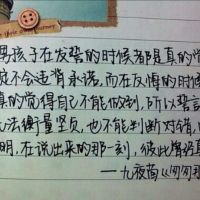 男孩子在发誓的时候都是真的觉
定不会违背承诺,而在反悔的时候
真的觉得自己不能做到,所以誓言
无法衡量坚贞,也不能判断对错,
明,在说出来的那一刻,彼此曾经真
——九夜茴《匆匆那